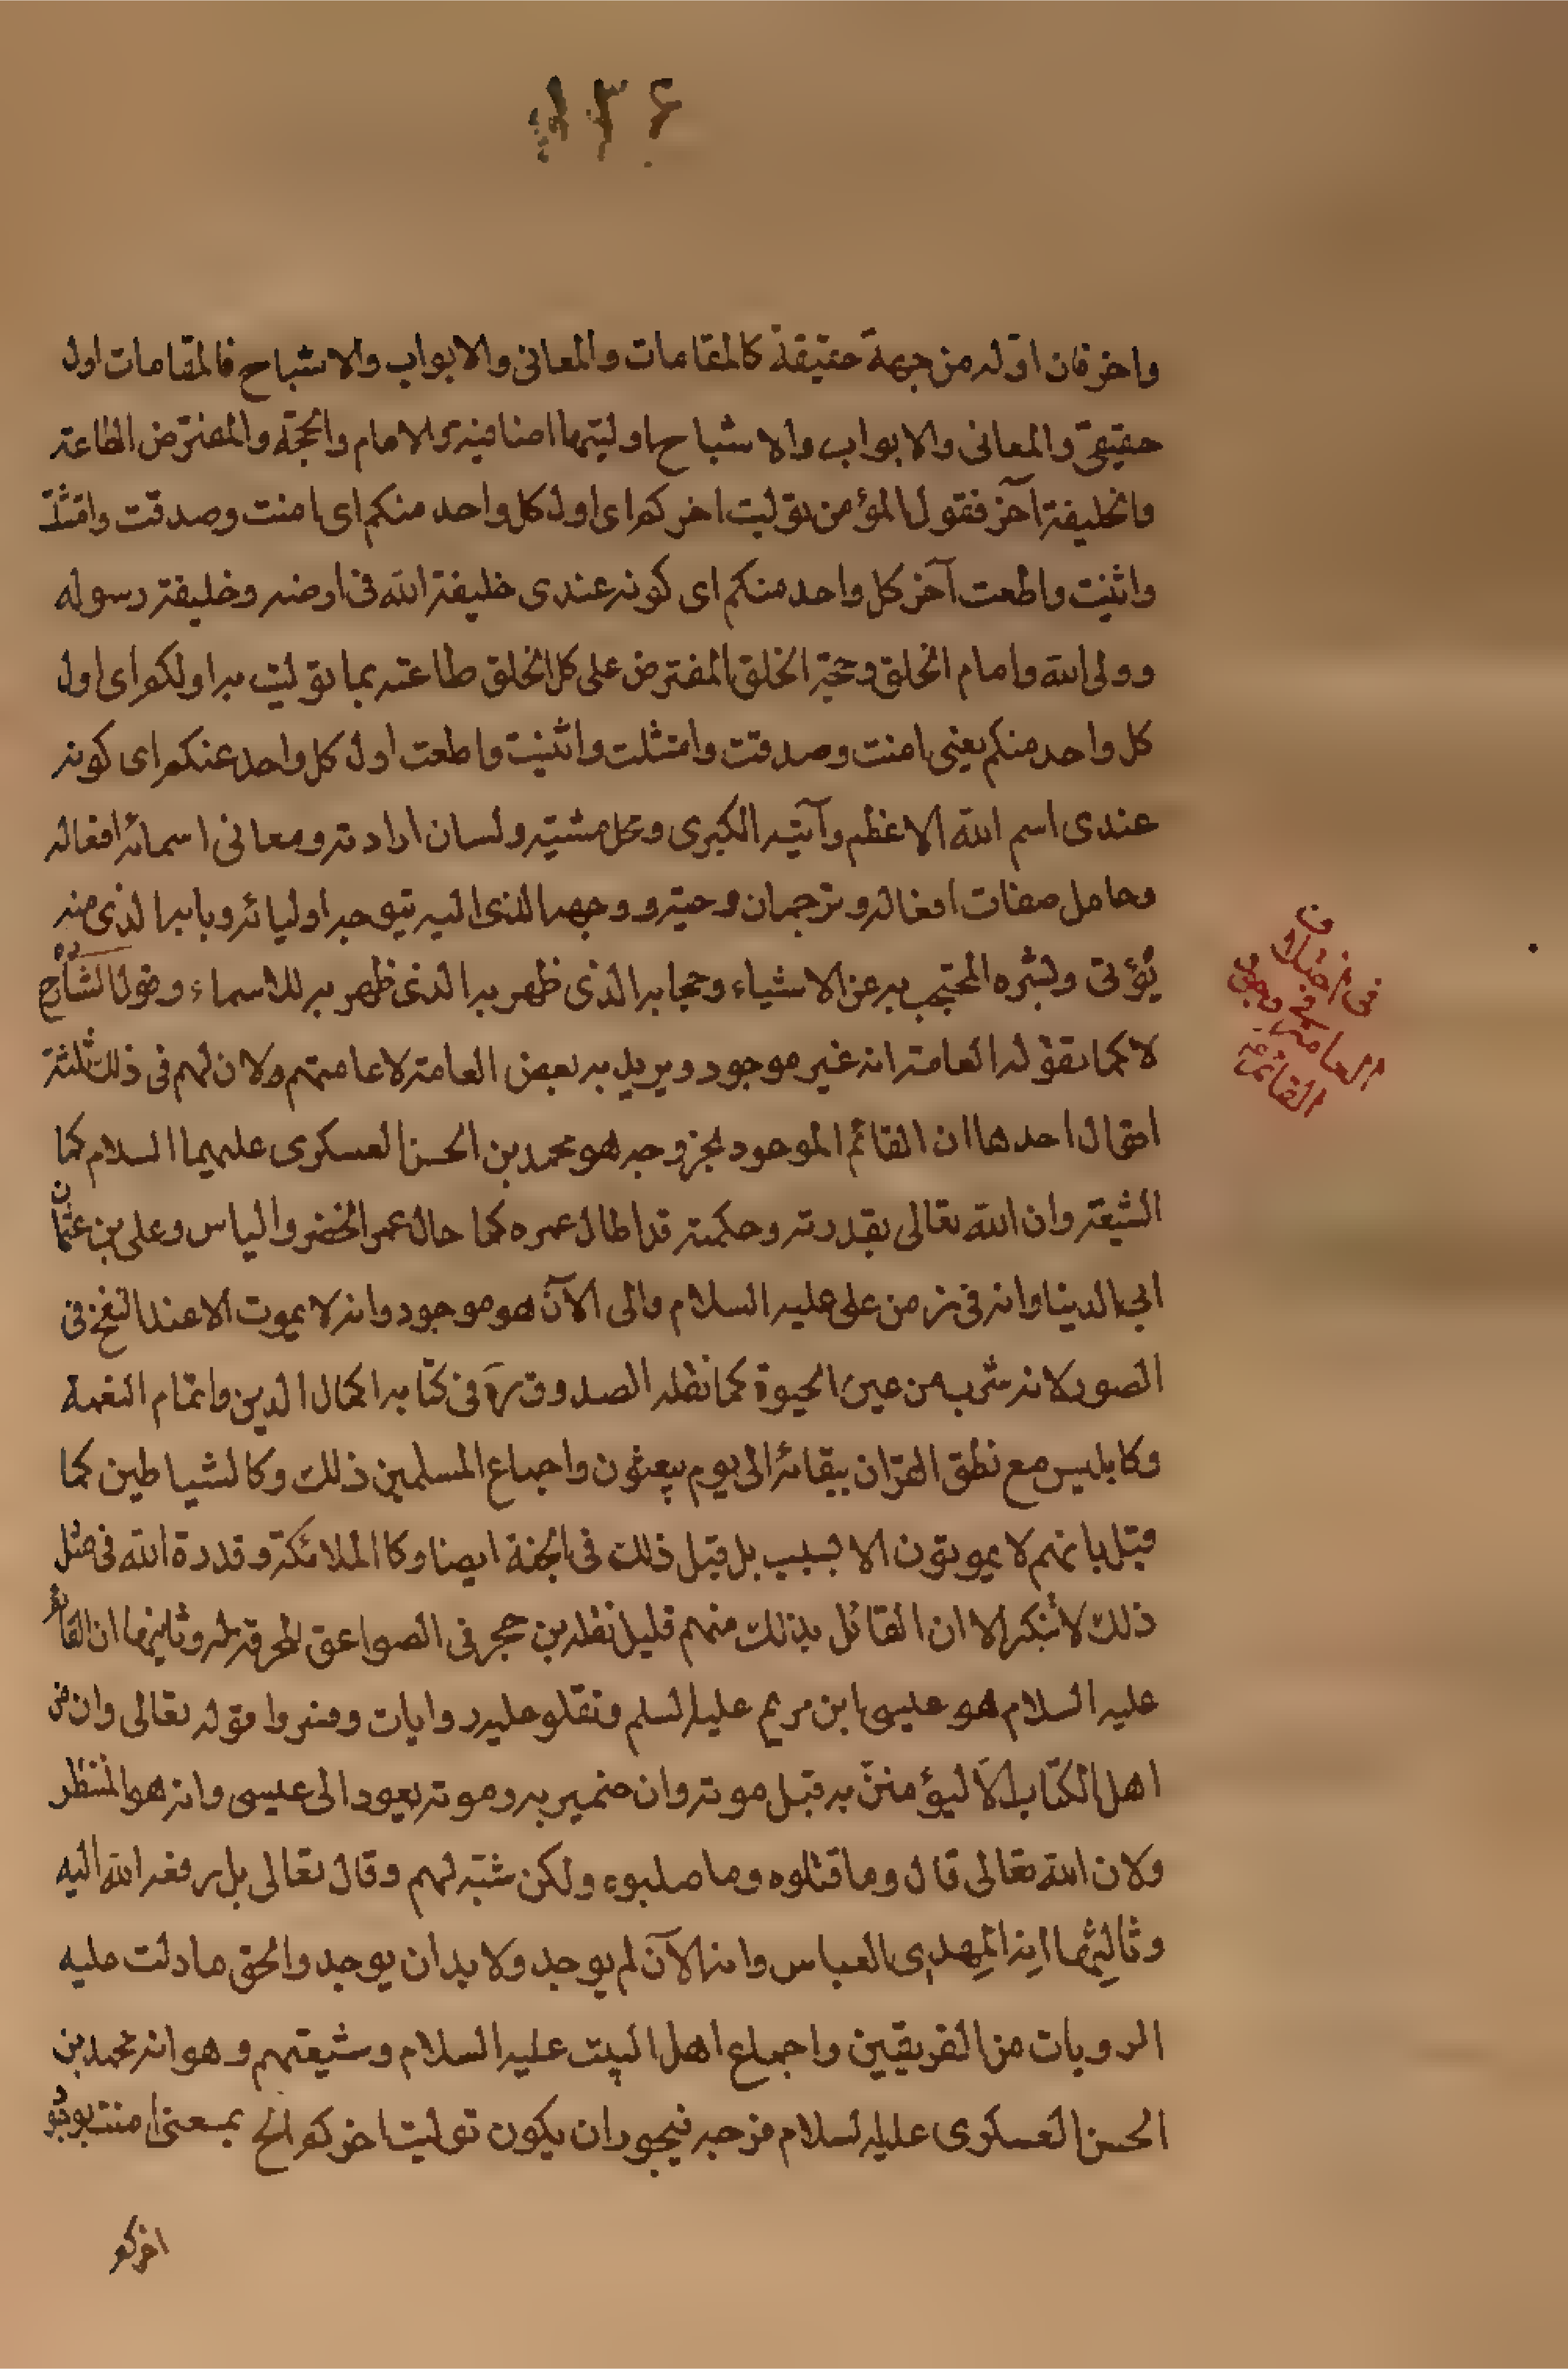 ١٣۶
واخر فان اوّله من جهة حقيقة كالمقامات والمعانى والابواب والاشباح فالمقامات اول
حقيقى والمعانى والابواب والاشباح اوليتها اضافية والامام والحجّة والمفترض الطاعة
والخليفة آخر فقول المؤمن توليت اخركم اى اول كل واحد منكم اى امنت وصدقت وامتثلت
واثنيت واطعت آخر كل واحد منكم اى كونه عندى خليفة الله فى ارضه وخليفة رسوله
وولى الله وامام الخلق وحجة الخلق المفترض على كل الخلق طاعته بما توليت به اولكم اى اول
كل واحد منكم يعنى امنت وصدقت وامتثلت واثنيت واطعت اول كل واحد عنكم اى كونه
عندى اسم الله الاعظم وآيته الكبرى ومحل مشيته ولسان ارادته ومعانى اسمائه افعاله
وحامل صفات افعاله وترجمان وحيه ووجهه الذى اليه يتوجه اولياؤه وبابه الذى منه
يؤتى وبشره المحتجب به عن الاشياء وحجابه الذى ظهر به الذى ظهر به للاسماء وقول الشارح ره
لا كما تقوله العامة انه غير موجود ويريد به بعض العامة لا عامتهم ولان لهم فى ذلك ثلثة
اقوال احدها ان القائم الموجود عجل فرجه هو محمد بن الحسن العسكرى عليهما السلام كما
الشيعة وان الله تعالى بقدرته وحكمته قد اطال عمره كما حال عمر الخضر والياس وعلى بن عثمان
ابى الدينا وانه فى زمن على عليه السلام والى الآن هو موجود وانه لا يموت الا عند النفخ فى
الصور لانه شرب من عين الحيوة كما نقله الصدوق ره فى كتابه اكمال الدين واتمام النعمة
وكابليس مع نطق القرآن ببقائه الى يوم يبعثون واجماع المسلمين ذلك وكالشياطين كما
قيل بانهم لا يموتون الا بسبب بل قيل ذلك فى الجنة ايضا وكا الملائكة وقدرة الله فى مثل
ذلك لا تنكر الا ان القائل بذلك منهم قليل نقله بن حجر فى الصواعق المحرقة له وثانيها ان القائم
عليه السلام هو عيسى ابن مريم عليه السلم ونقلو عليه روايات وفسروا قوله تعالى وان من
اهل الكتاب الّا ليؤمننّ به قبل موته وان ضمير به وموته يعود الى عيسى وانه هو المنتظر
ولان الله تعالى قال وما قتلوه وما صلبوه ولكن شبّه لهم وقال تعالى بل رفعه الله اليه
وثالثها انه المهدى العباس وانه الآن لم يوجد ولا بد ان يوجد والحق ما دلت عليه
الروبات من الفريقين واجماع اهل البيت عليه السلام وشيعتهم وهو انه محمد بن
الحسن العسكرى عليه السلام فرجه فيجوز ان يكون توليت اخركم الخ بمعنى امنت بوجود
اخركم
فى اختلاف
العامة فى وجود
القائم